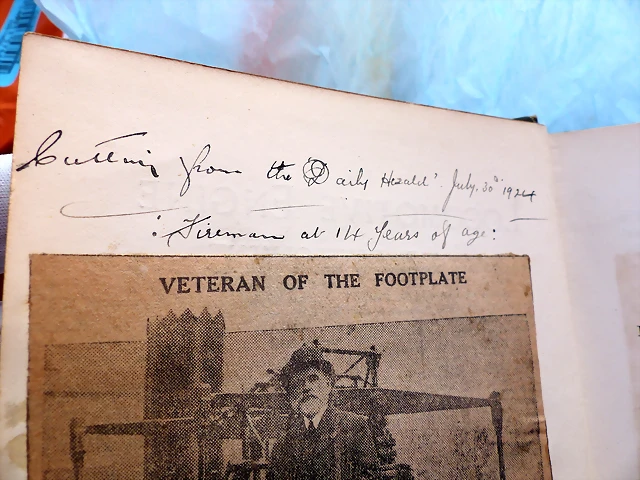 Cutting from the 'Daily Herald' July. 30th 1924
: Fireman at 14 Years of age :
VETERAN OF THE FOOTPLATE